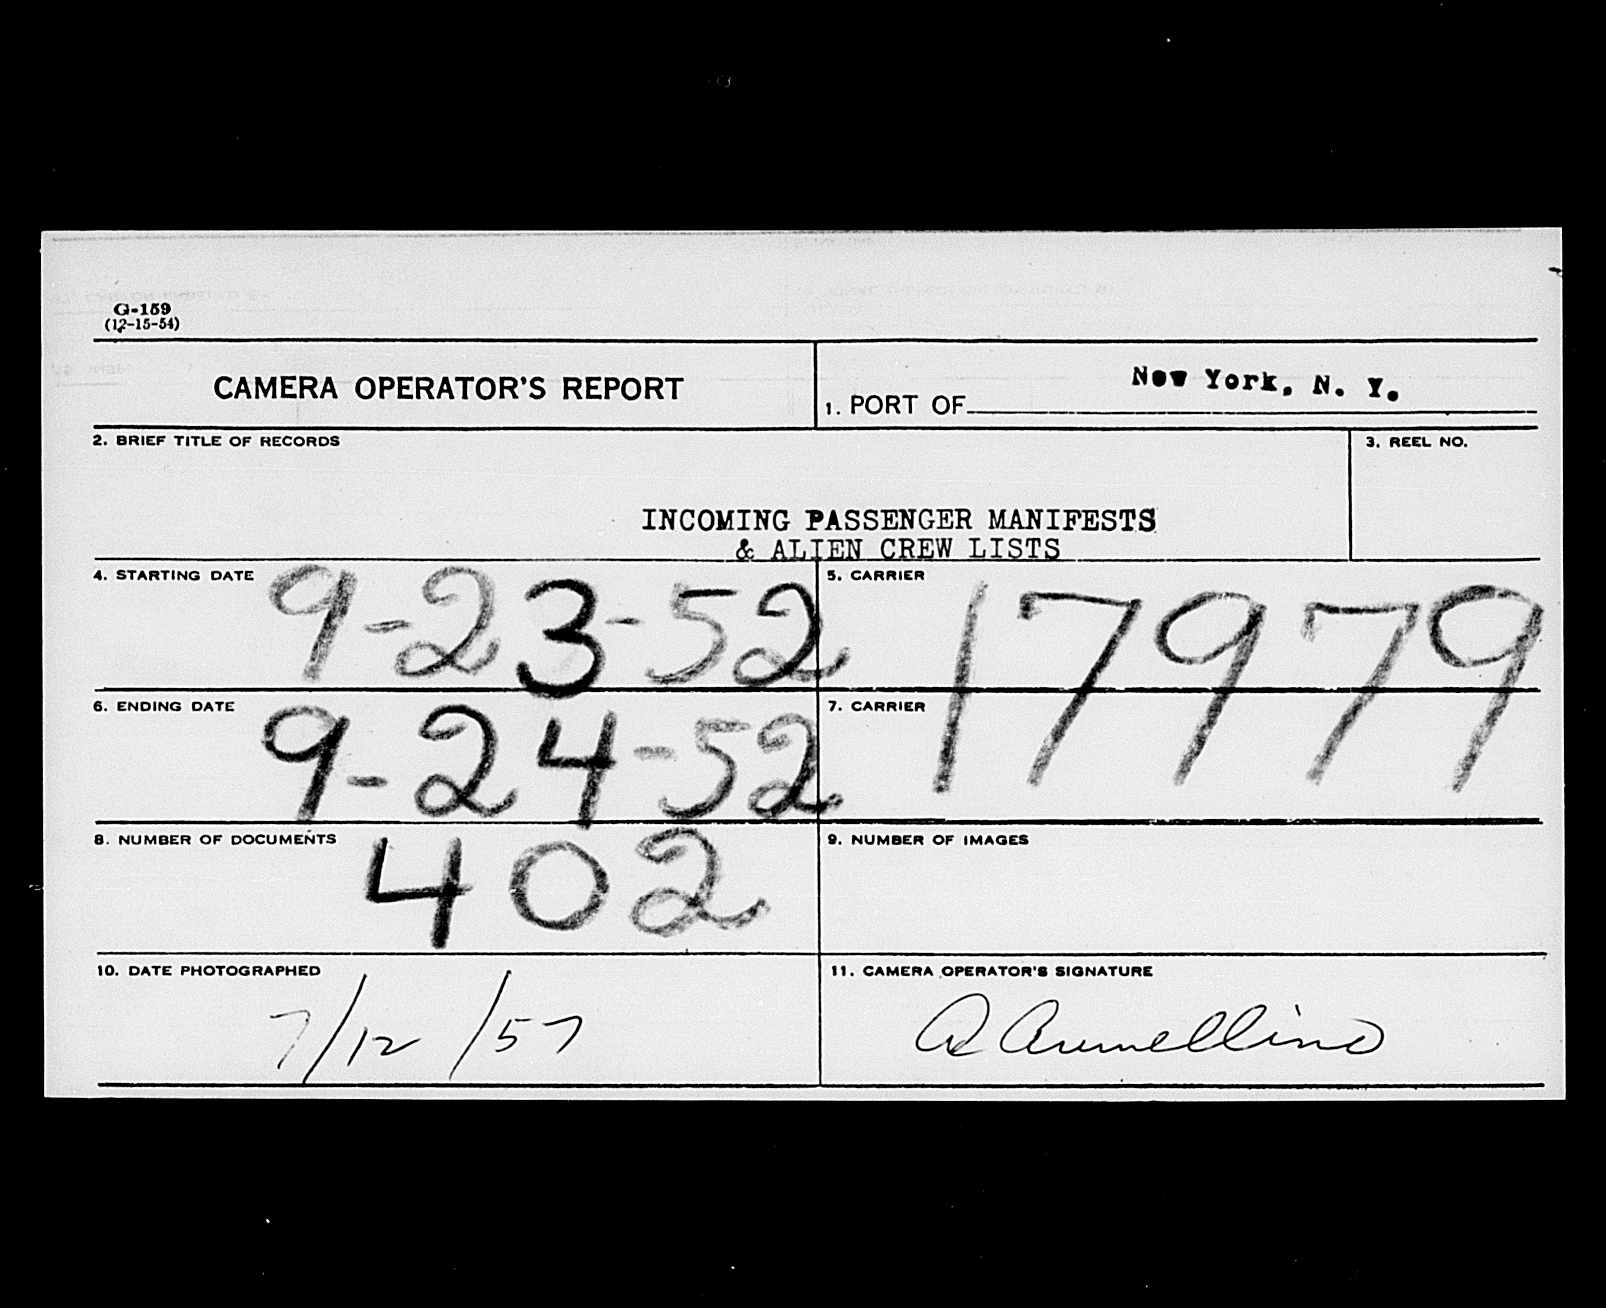 G-159
(12-15-54)
CAMERA OPERATOR'S REPORT
1. PORT OF New York, N. Y.
2. BRIEF TITLE OF RECORDS
3. REEL NO.
INCOMING PASSENGER MANIFESTS
& ALIEN CREW LISTS
4. STARTING DATE 9-23-52
5. CARRIER 17979
6. ENDING DATE 9-24-52
7. CARRIER
8. NUMBER OF DOCUMENTS 402
9. NUMBER OF IMAGES
10. DATE PHOTOGRAPHED
7/12/57
11. CAMERA OPERATOR'S SIGNATURE